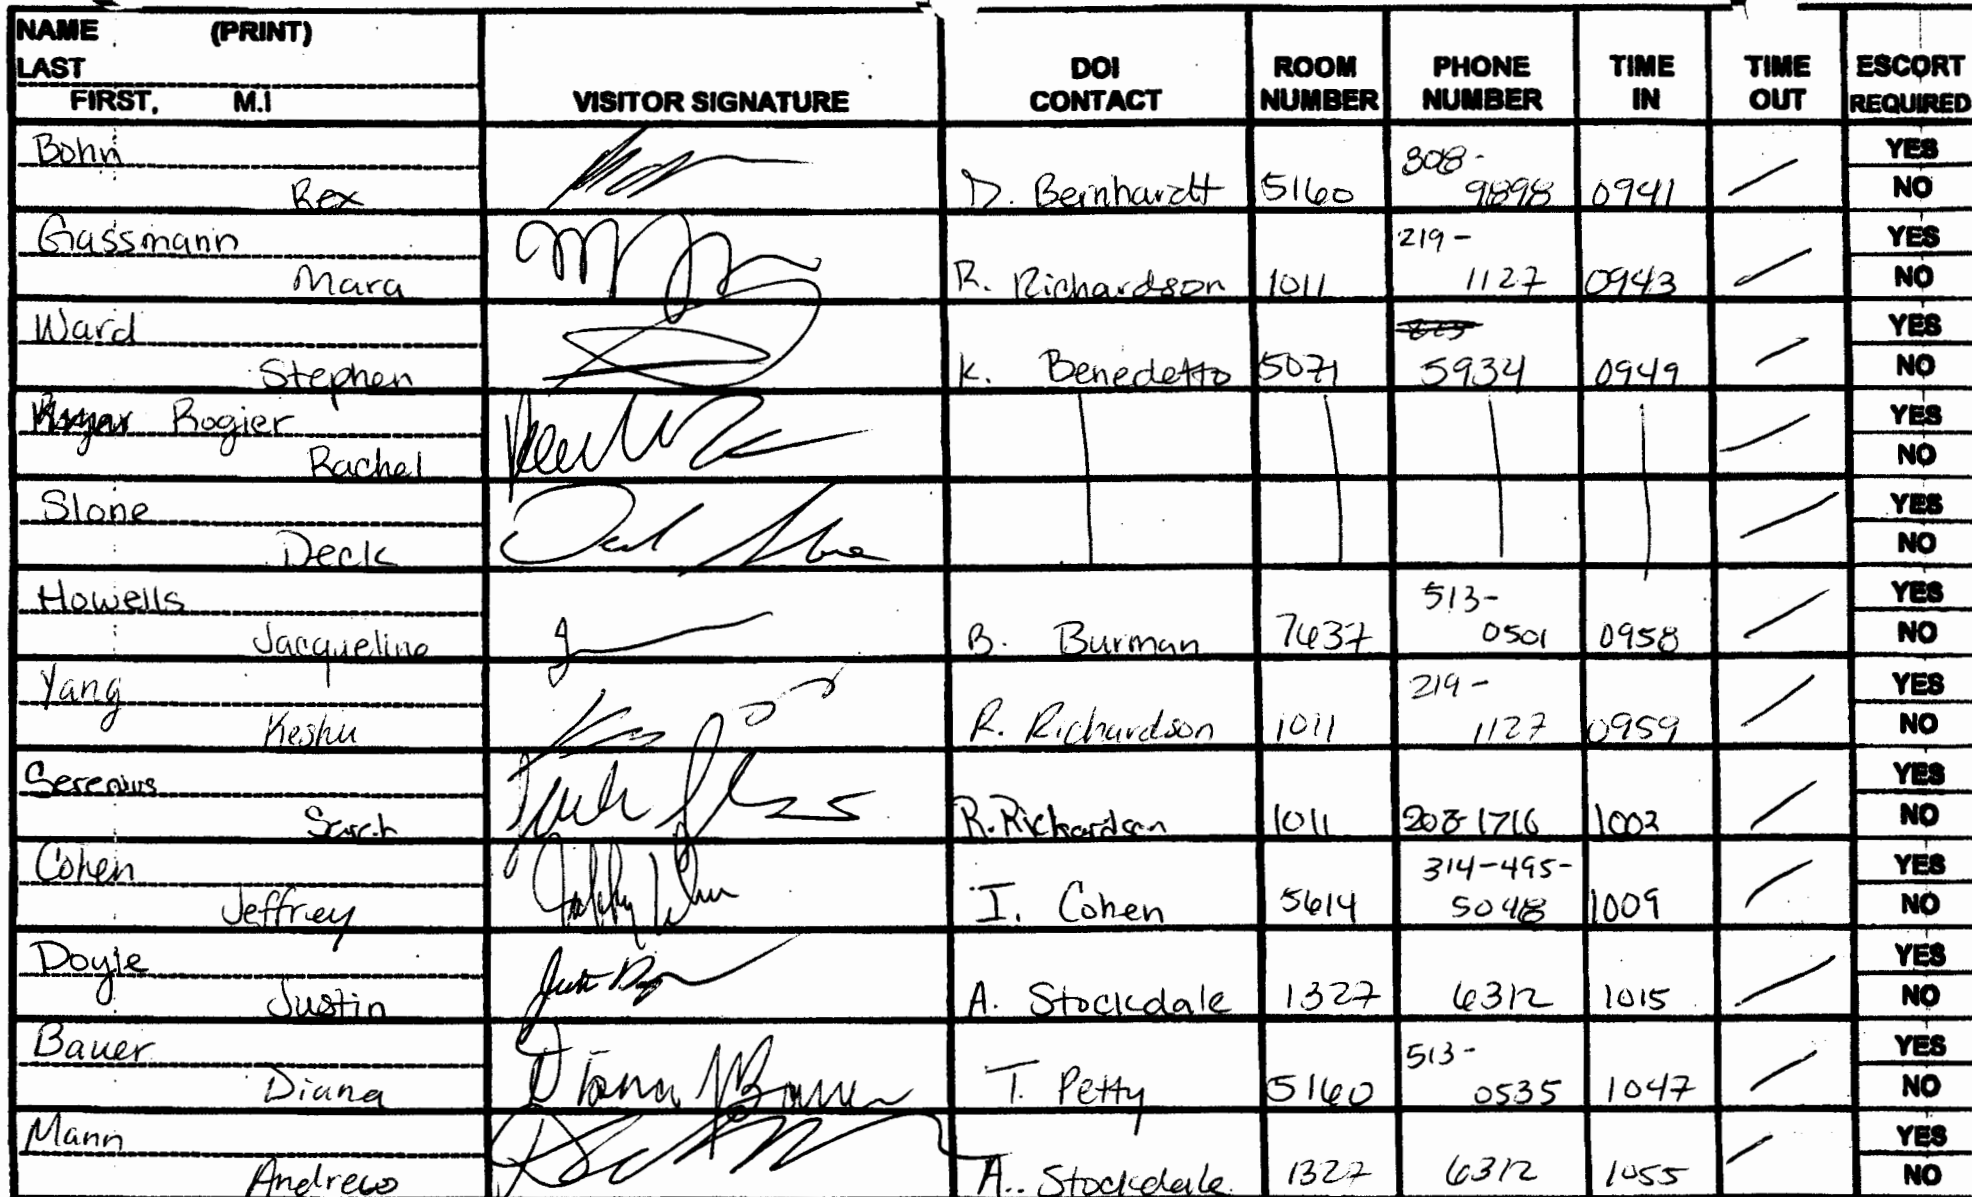 NAME (PRINT)
LAST
FIRST, M.I
VISITOR SIGNATURE
DOI CONTACT
ROOM NUMBER
PHONE NUMBER
TIME IN
TIME OUT
ESCORT REQUIRED
Bohn YES
Rex D. Bernhardt 5160 308-9898 0941 NO
Gassmann YES
Mara R. Richardson 1011 219-1127 0943 NO
Ward YES
Stephen K. Benedetto 5071 5934 0949 NO
Rogier YES
Rachel NO
Slone YES
Deck NO
Howells YES
Jacqueline B. Burman 7637 513-0501 0958 NO
Yang YES
Keshu R. Richardson 1011 219-1127 0959 NO
Serenius YES
Sarah R. Richardson 1011 208-1716 1002 NO
Cohen YES
Jeffrey I. Cohen 5614 314-495-5048 1009 NO
Doyle YES
Justin A. Stockdale 1327 6312 1015 NO
Bauer YES
Diana Diana Bauer T. Petty 5160 513-0535 1047 NO
Mann YES
Andrew A. Stockdale 1327 6312 1055 NO